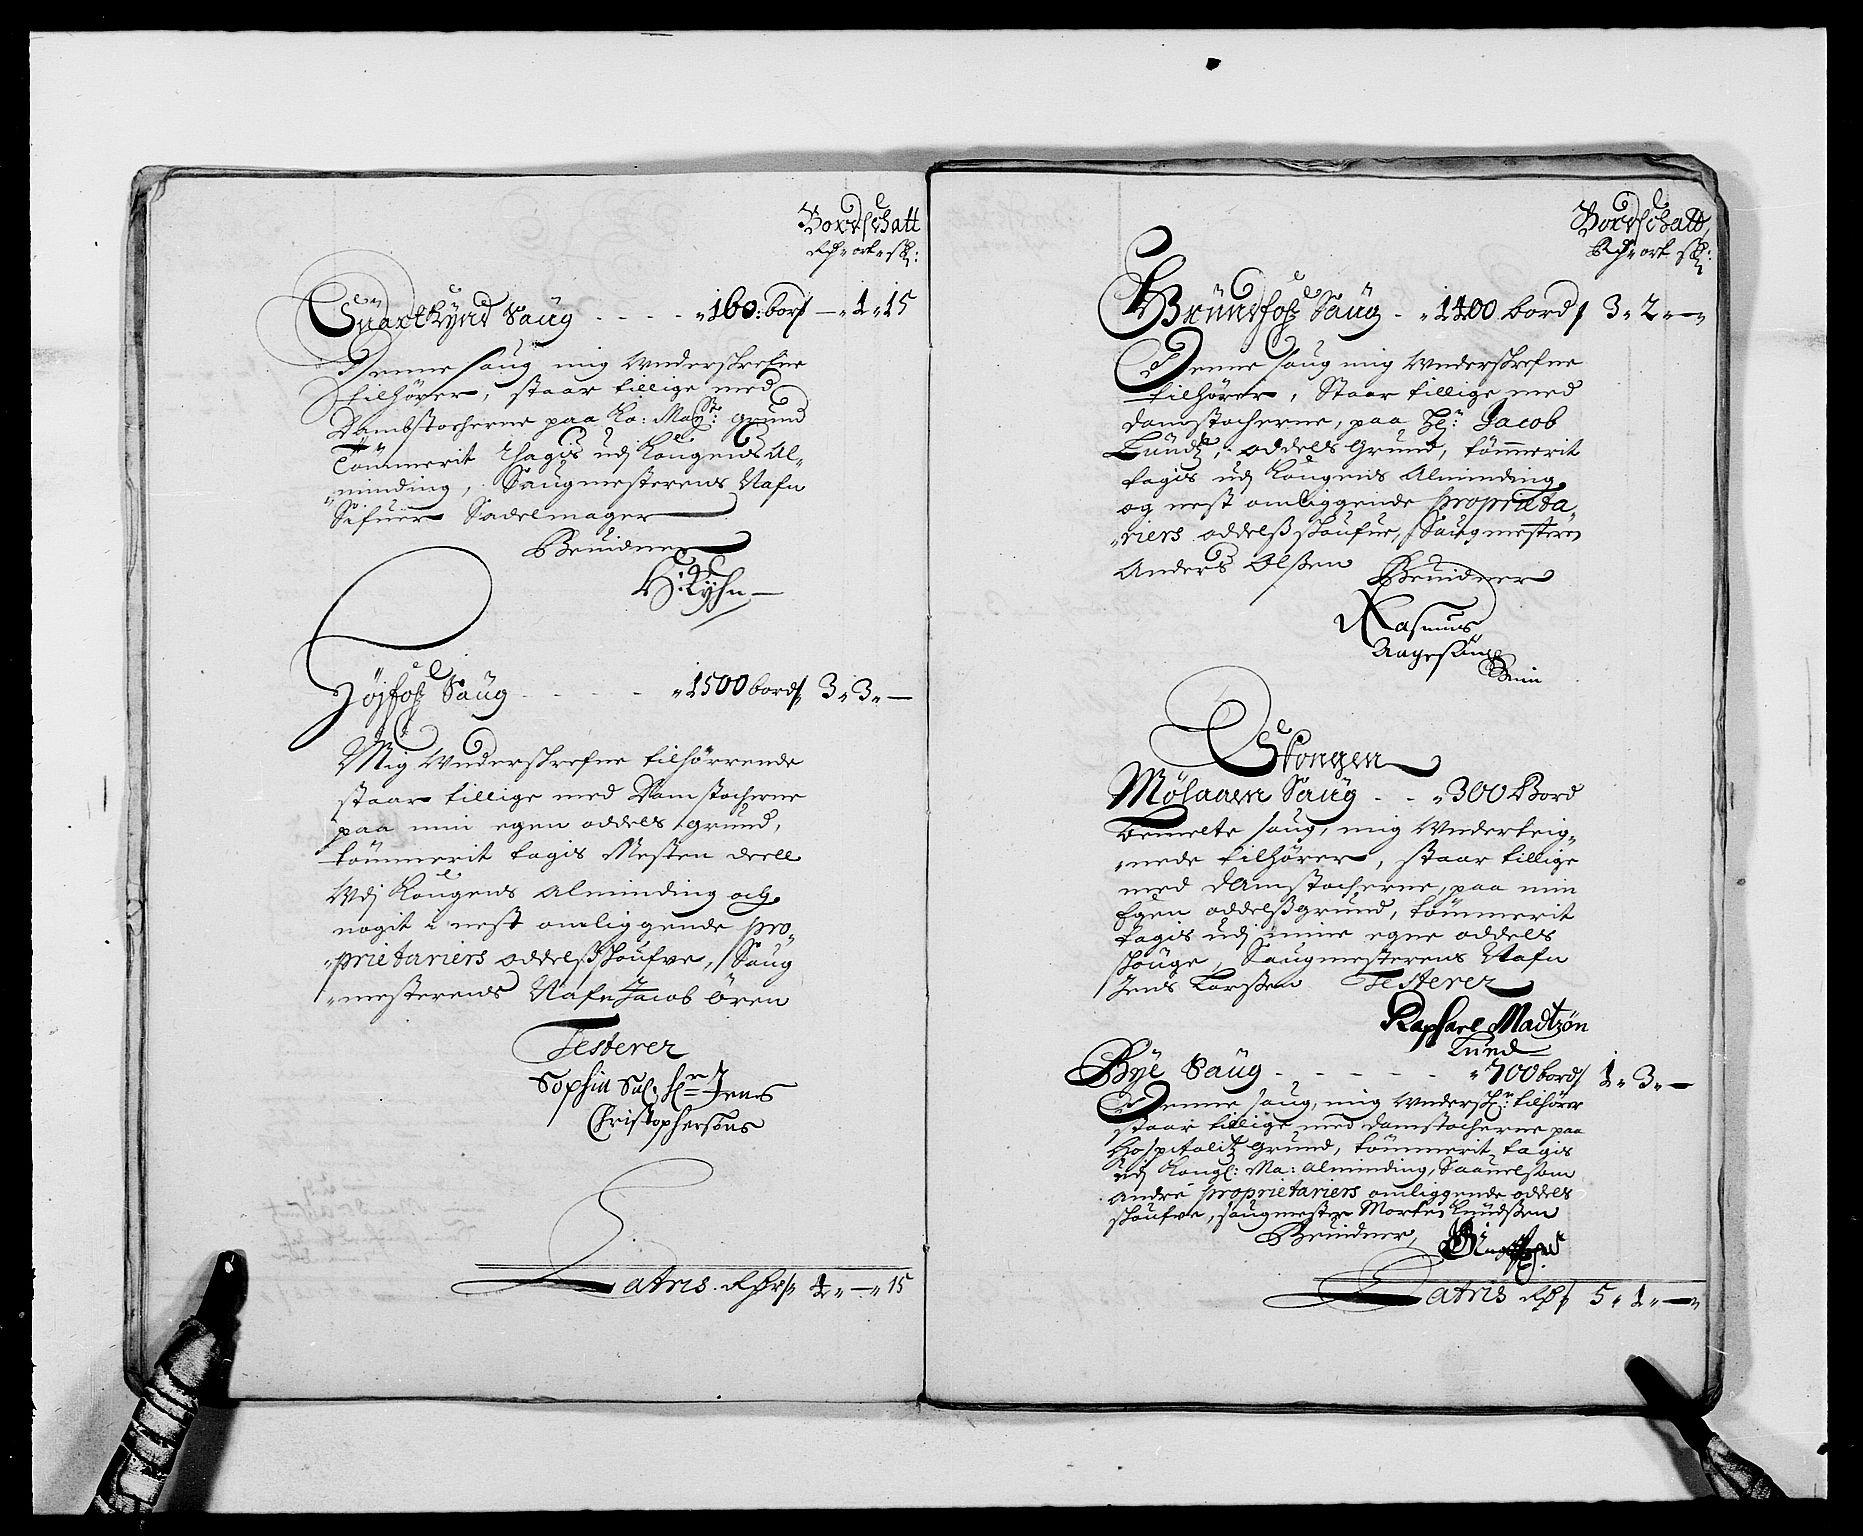 Bordschatt
Rdr ort sk:
Suartkynd Saug - - - - 160: bord — 1 15
Denne saug mig Underskrefne
tilhörer, staar tillige med
Dambstocherne paa Ko: Mayst: grund
Tömmerit thagis udj Kongens Al-
minding, Saugmesterens Nafn
Sifuer Sadelmager
Beuidner
H: Kyhn
Höjfos Saug - - - - - 1500 bord 3 3 —
Mig Underskrefne tilhörrende
staar tillige med Damstocherne
paa min egen oddels grund,
tömmerit tagis Mesten deell
Udj Kongens Alminding och
nogit i nest omliggende pro-
prietariers oddelsskoufve, Saug
mesterens Nafn Jacob ören
Testerer
Sophia Sal. Hr Jens
Christophersöns
Latris Rdr 4 — 15
Bordschatt,
Rdr ort sk:
Brundfos Saug - 1400 bord 3 2 —
Denne saug mig Underskrefne
tilhörer, Staar tillige med
damstocherne, paa Hr: Jacob
Lundz, oddels Grund, tömmerit
tagis udj Kongens Alminding
og nest omliggende proprieta-
riers oddelsskoufue, Saugmesteren
Anders Olssen Beuidner
Rasmus
Aagesön
Skongen
Mölaaen Saug - - 300 Bord
bemelte saug, mig Underteig-
nede tilhörer, staar tillige
med damstocherne, paa min
Egen oddelssgrund, tömmerit
tagis udj mine egne oddels
skouge, Saugmesterens Nafn
Jens Larssen Testerer
Raphael Madtzön
Lund
Bye Saug - - - - - 700 bord 1 3 —
Denne saug, mig Undersk: tilhörer
staar tillige med damstocherne paa
Hospitalitz grund, tömmerit tagis
udj Kongl: Ma: alminding, Saauelsom
andre proprietariers omliggende oddels
skoufve, saugmester Morten Knudssen
Beuidner,
Latris Rdr 5 1 —